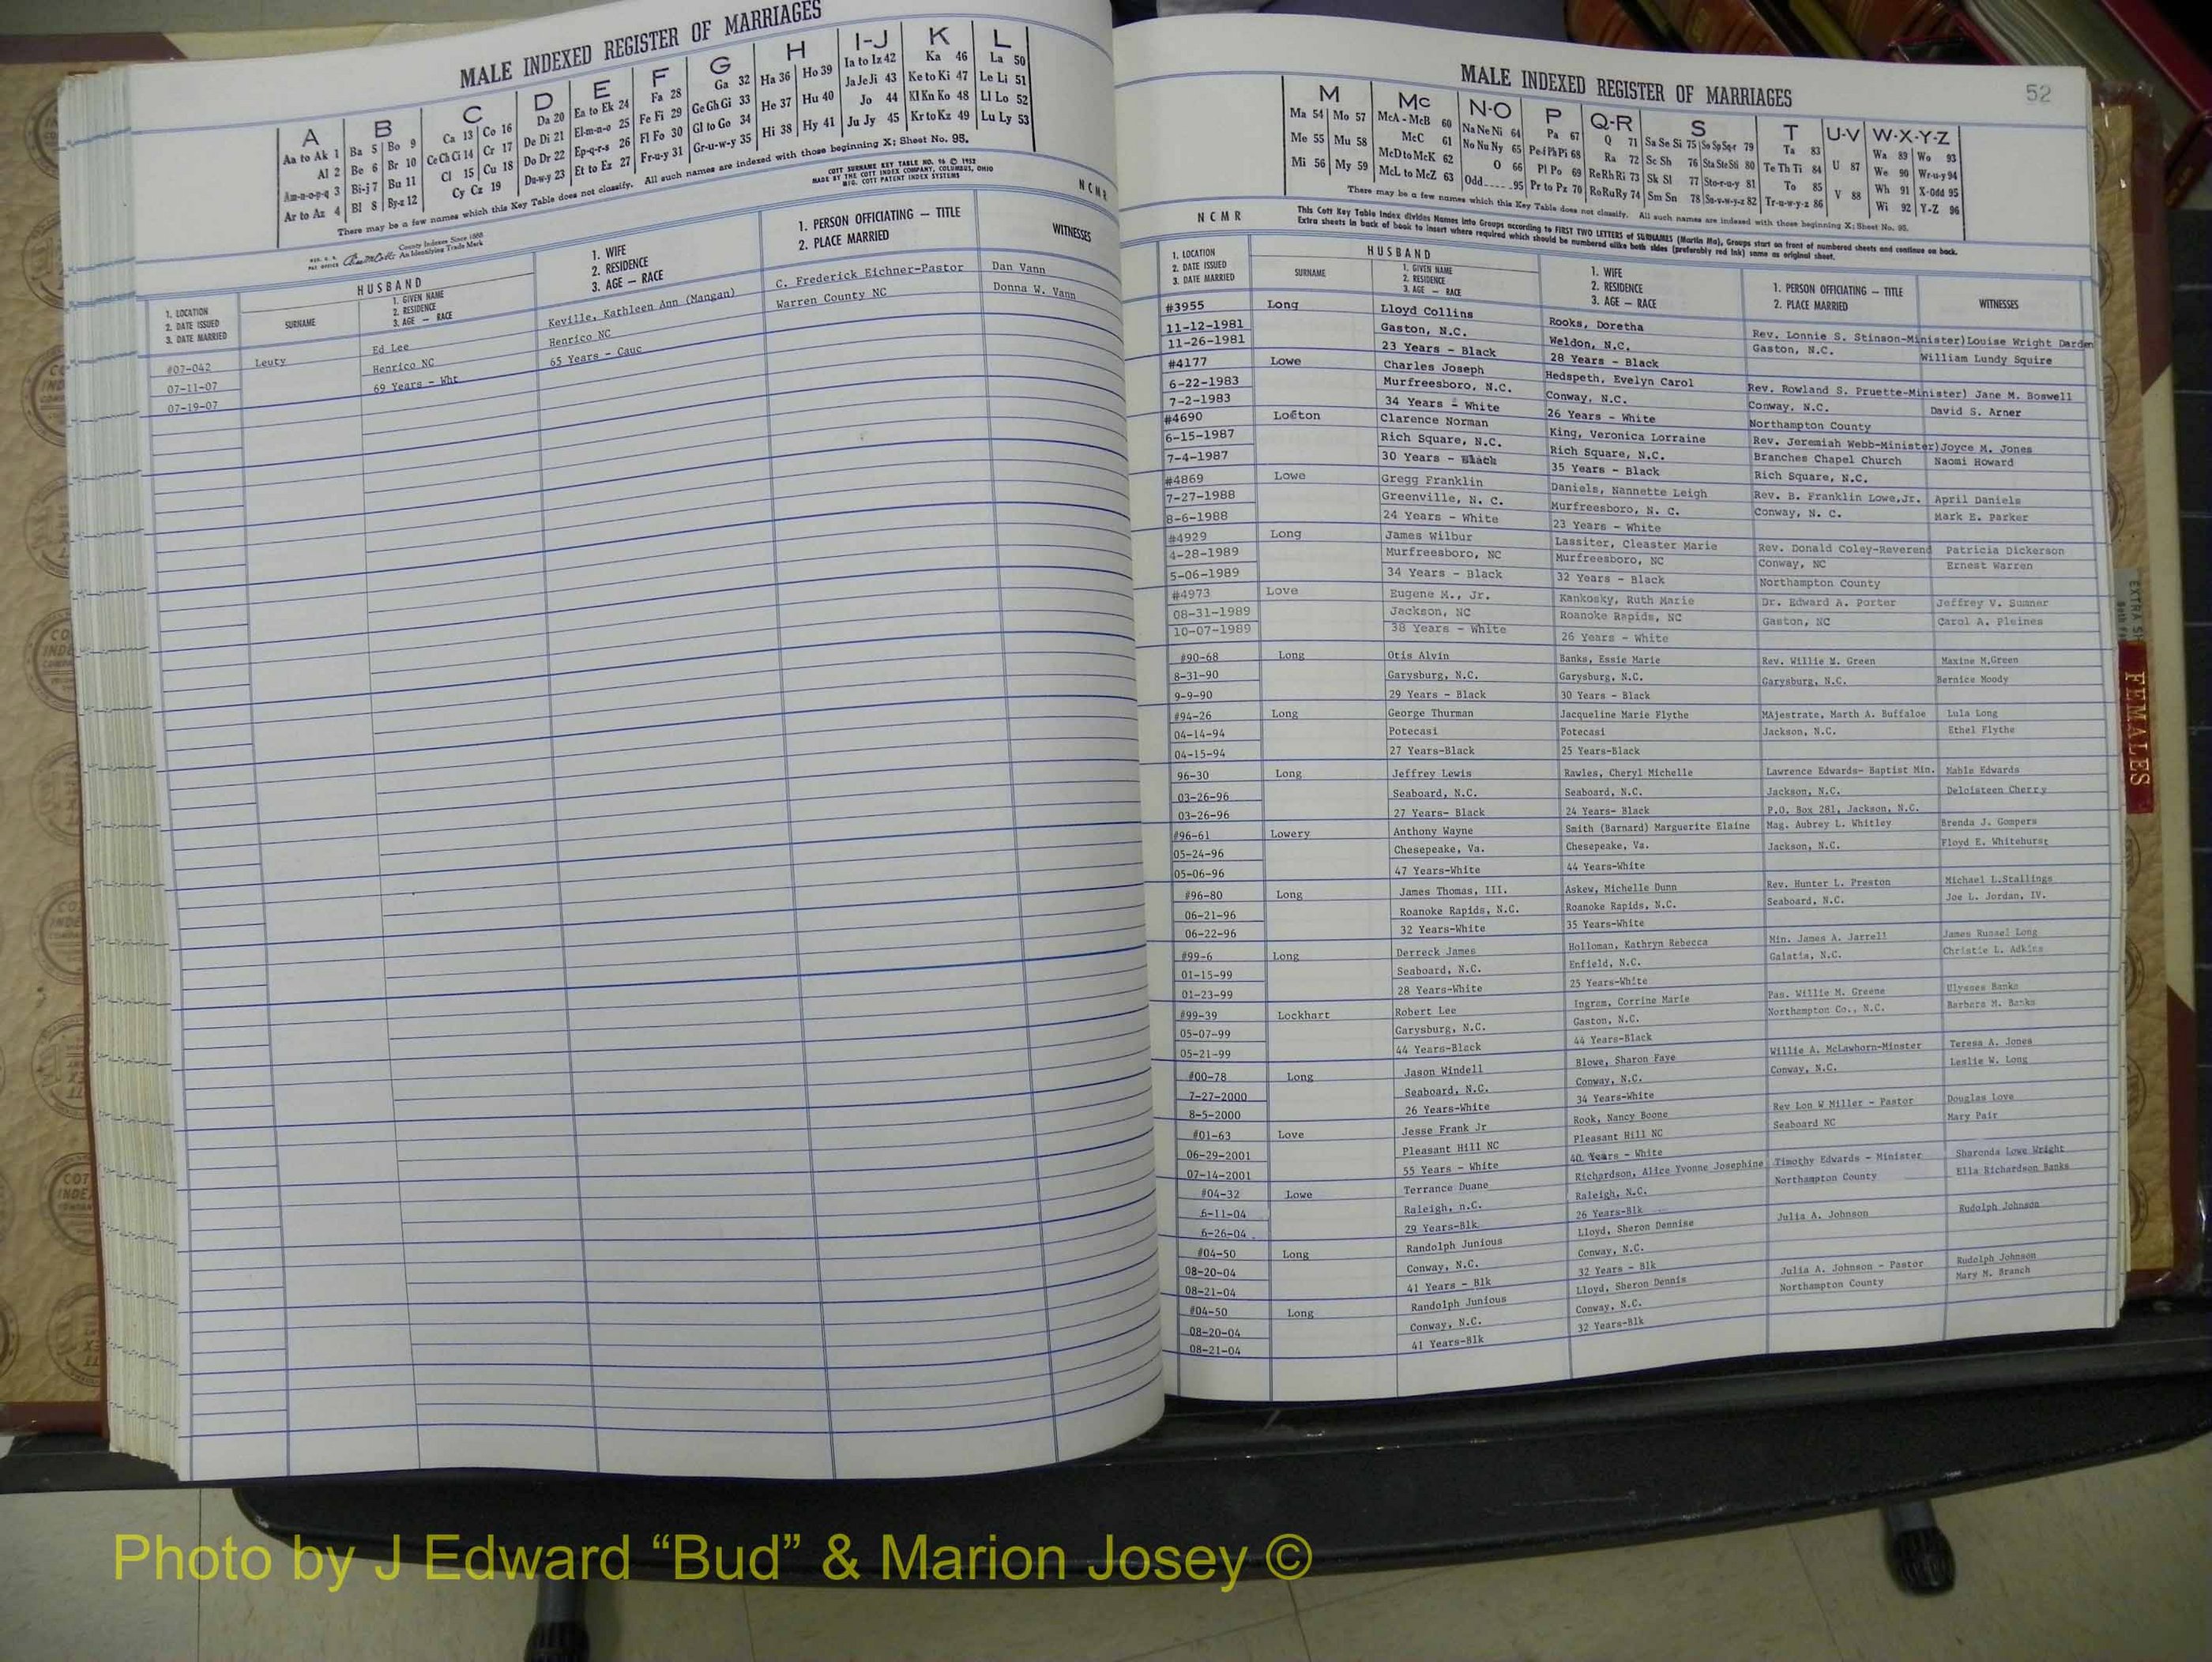 MALE INDEXED REGISTER OF MARRIAGES
A B C D E F G H I-J K L
Aa to Ak 1 Ba 5 Bo 9 Ca 13 Co 16 Da 20 Ea to Ek 24 Fa 28 Ga 32 Ha 36 Ho 39 Ia to Iz 42 Ka 46 La 50
Al 2 Be 6 Br 10 Ce Ch Ci 14 Cr 17 De Di 21 El-m-n-o 25 Fe Fi 29 Ge Gh Gi 33 He 37 Hu 40 Ja Je Ji 43 Ke to Ki 47 Le Li 51
Am-n-o-p-q 3 Bi-j 7 Bu 11 Cl 15 Cu 18 Do Dr 22 Ep-q-r-s 26 Fl Fo 30 Gl to Go 34 Hi 38 Hy 41 Jo 44 Kl Kn Ko 48 Ll Lo 52
Ar to Az 4 Bl 8 By-z 12 Cy Cz 19 Du-w-y 23 Et to Ez 27 Fr-u-y 31 Gr-u-w-y 35 Ju Jy 45 Kr to Kz 49 Lu Ly 53
There may be a few names which this Key Table does not classify. All such names are indexed with those beginning X; Sheet No. 95.
COTT SURNAME KEY TABLE NO. 96 © 1952
MADE BY THE COTT INDEX COMPANY, COLUMBUS, OHIO
MFG. COTT PATENT INDEX SYSTEMS
N C M R
County Indexes Since 1888
An Identifying Trade Mark
HUSBAND
1. LOCATION
2. DATE ISSUED
3. DATE MARRIED
SURNAME
1. GIVEN NAME
2. RESIDENCE
3. AGE — RACE
1. WIFE
2. RESIDENCE
3. AGE — RACE
1. PERSON OFFICIATING — TITLE
2. PLACE MARRIED
WITNESSES
#07-042 Leuty Ed Lee Keville, Kathleen Ann (Mangan) C. Frederick Eichner-Pastor Dan Vann
07-11-07 Henrico NC Henrico NC Warren County NC Donna W. Vann
07-19-07 69 Years - Wht 65 Years - Cauc
MALE INDEXED REGISTER OF MARRIAGES
52
M Mc N-O P Q-R S T U-V W-X-Y-Z
Ma 54 Mo 57 McA - McB 60 Na Ne Ni 64 Pa 67 Q 71 Sa Se Si 75 So Sp Sq-r 79 Ta 83 U 87 Wa 89 Wo 93
Me 55 Mu 58 McC 61 No Nu Ny 65 Pe-f Ph Pi 68 Ra 72 Sc Sh 76 Sta Ste Sti 80 Te Th Ti 84 We 90 Wr-u-y 94
Mi 56 My 59 McD to McK 62 O 66 Pl Po 69 Re Rh Ri 73 Sk Sl 77 Sto-r-u-y 81 To 85 V 88 Wh 91 X-Odd 95
McL to McZ 63 Odd 95 Pr to Pz 70 Ro Ru Ry 74 Sm Sn 78 Su-v-w-y-z 82 Tr-u-w-y-z 86 Wi 92 Y-Z 96
There may be a few names which this Key Table does not classify. All such names are indexed with those beginning X; Sheet No. 95.
N C M R
This Cott Key Table Index divides Names into Groups according to FIRST TWO LETTERS of SURNAMES (Martin Ma), Groups start on front of numbered sheets and continue on back.
Extra sheets in back of book to insert where required which should be numbered alike both sides (preferably red ink) same as original sheet.
HUSBAND
1. LOCATION
2. DATE ISSUED
3. DATE MARRIED
SURNAME
1. GIVEN NAME
2. RESIDENCE
3. AGE — RACE
1. WIFE
2. RESIDENCE
3. AGE — RACE
1. PERSON OFFICIATING — TITLE
2. PLACE MARRIED
WITNESSES
#3955 Long Lloyd Collins Rooks, Doretha Rev. Lonnie S. Stinson-Minister)Louise Wright Darden
11-12-1981 Gaston, N.C. Weldon, N.C. Gaston, N.C. William Lundy Squire
11-26-1981 23 Years - Black 28 Years - Black
#4177 Lowe Charles Joseph Hedspeth, Evelyn Carol Rev. Rowland S. Pruette-Minister) Jane M. Boswell
6-22-1983 Murfreesboro, N.C. Conway, N.C. Conway, N.C. David S. Arner
7-2-1983 34 Years - White 26 Years - White Northampton County
#4690 Lofton Clarence Norman King, Veronica Lorraine Rev. Jeremiah Webb-Minister)Joyce M. Jones
6-15-1987 Rich Square, N.C. Rich Square, N.C. Branches Chapel Church Naomi Howard
7-4-1987 30 Years - Black 35 Years - Black Rich Square, N.C.
#4869 Lowe Gregg Franklin Daniels, Nannette Leigh Rev. B. Franklin Lowe,Jr. April Daniels
7-27-1988 Greenville, N. C. Murfreesboro, N. C. Conway, N. C. Mark E. Parker
8-6-1988 24 Years - White 23 Years - White
#4929 Long James Wilbur Lassiter, Cleaster Marie Rev. Donald Coley-Reverend Patricia Dickerson
4-28-1989 Murfreesboro, NC Murfreesboro, NC Conway, NC Ernest Warren
5-06-1989 34 Years - Black 32 Years - Black Northampton County
#4973 Love Eugene M., Jr. Kankosky, Ruth Marie Dr. Edward A. Porter Jeffrey V. Sumner
08-31-1989 Jackson, NC Roanoke Rapids, NC Gaston, NC Carol A. Pleines
10-07-1989 38 Years - White 26 Years - White
#90-68 Long Otis Alvin Banks, Essie Marie Rev. Willie M. Green Maxine M.Green
8-31-90 Garysburg, N.C. Garysburg, N.C. Garysburg, N.C. Bernice Moody
9-9-90 29 Years - Black 30 Years - Black
#94-26 Long George Thurman Jacqueline Marie Flythe MAjestrate, Marth A. Buffaloe Lula Long
04-14-94 Potecasi Potecasi Jackson, N.C. Ethel Flythe
04-15-94 27 Years-Black 25 Years-Black
96-30 Long Jeffrey Lewis Rawles, Cheryl Michelle Lawrence Edwards- Baptist Min. Mable Edwards
03-26-96 Seaboard, N.C. Seaboard, N.C. Jackson, N.C. Deloisteen Cherry
03-26-96 27 Years- Black 24 Years- Black P.O. Box 281, Jackson, N.C.
#96-61 Lowery Anthony Wayne Smith (Barnard) Marguerite Elaine Mag. Aubrey L. Whitley Brenda J. Gompers
05-24-96 Chesepeake, Va. Chesepeake, Va. Jackson, N.C. Floyd E. Whitehurst
05-06-96 47 Years-White 44 Years-White
#96-80 Long James Thomas, III. Askew, Michelle Dunn Rev. Hunter L. Preston Michael L.Stallings
06-21-96 Roanoke Rapids, N.C. Roanoke Rapids, N.C. Seaboard, N.C. Joe L. Jordan, IV.
06-22-96 32 Years-White 35 Years-White
#99-6 Long Derreck James Holloman, Kathryn Rebecca Min. James A. Jarrell James Russel Long
01-15-99 Seaboard, N.C. Enfield, N.C. Galatia, N.C. Christie L. Adkins
01-23-99 28 Years-White 25 Years-White
#99-39 Lockhart Robert Lee Ingram, Corrine Marie Pas. Willie M. Greene Ulysses Banks
05-07-99 Garysburg, N.C. Gaston, N.C. Northampton Co., N.C. Barbara M. Banks
05-21-99 44 Years-Black 44 Years-Black
#00-78 Long Jason Windell Blowe, Sharon Faye Willie A. McLawhorn-Minster Teresa A. Jones
7-27-2000 Seaboard, N.C. Conway, N.C. Conway, N.C. Leslie W. Long
8-5-2000 26 Years-White 34 Years-White
#01-63 Love Jesse Frank Jr Rook, Nancy Boone Rev Lon W Miller - Pastor Douglas Love
06-29-2001 Pleasant Hill NC Pleasant Hill NC Seaboard NC Mary Pair
07-14-2001 55 Years - White 40 Years - White
#04-32 Lowe Terrance Duane Richardson, Alice Yvonne Josephine Timothy Edwards - Minister Sharonda Lowe Wright
6-11-04 Raleigh, n.C. Raleigh, N.C. Northampton County Ella Richardson Banks
6-26-04 29 Years-Blk 26 Years-Blk
#04-50 Long Randolph Junious Lloyd, Sheron Dennise Julia A. Johnson Rudolph Johnson
08-20-04 Conway, N.C. Conway, N.C.
08-21-04 41 Years - Blk 32 Years - Blk
#04-50 Long Randolph Junious Lloyd, Sheron Dennis Julia A. Johnson - Pastor Rudolph Johnson
08-20-04 Conway, N.C. Conway, N.C. Northampton County Mary M. Branch
08-21-04 41 Years-Blk 32 Years-Blk
FEMALES
Photo by J Edward “Bud” & Marion Josey ©